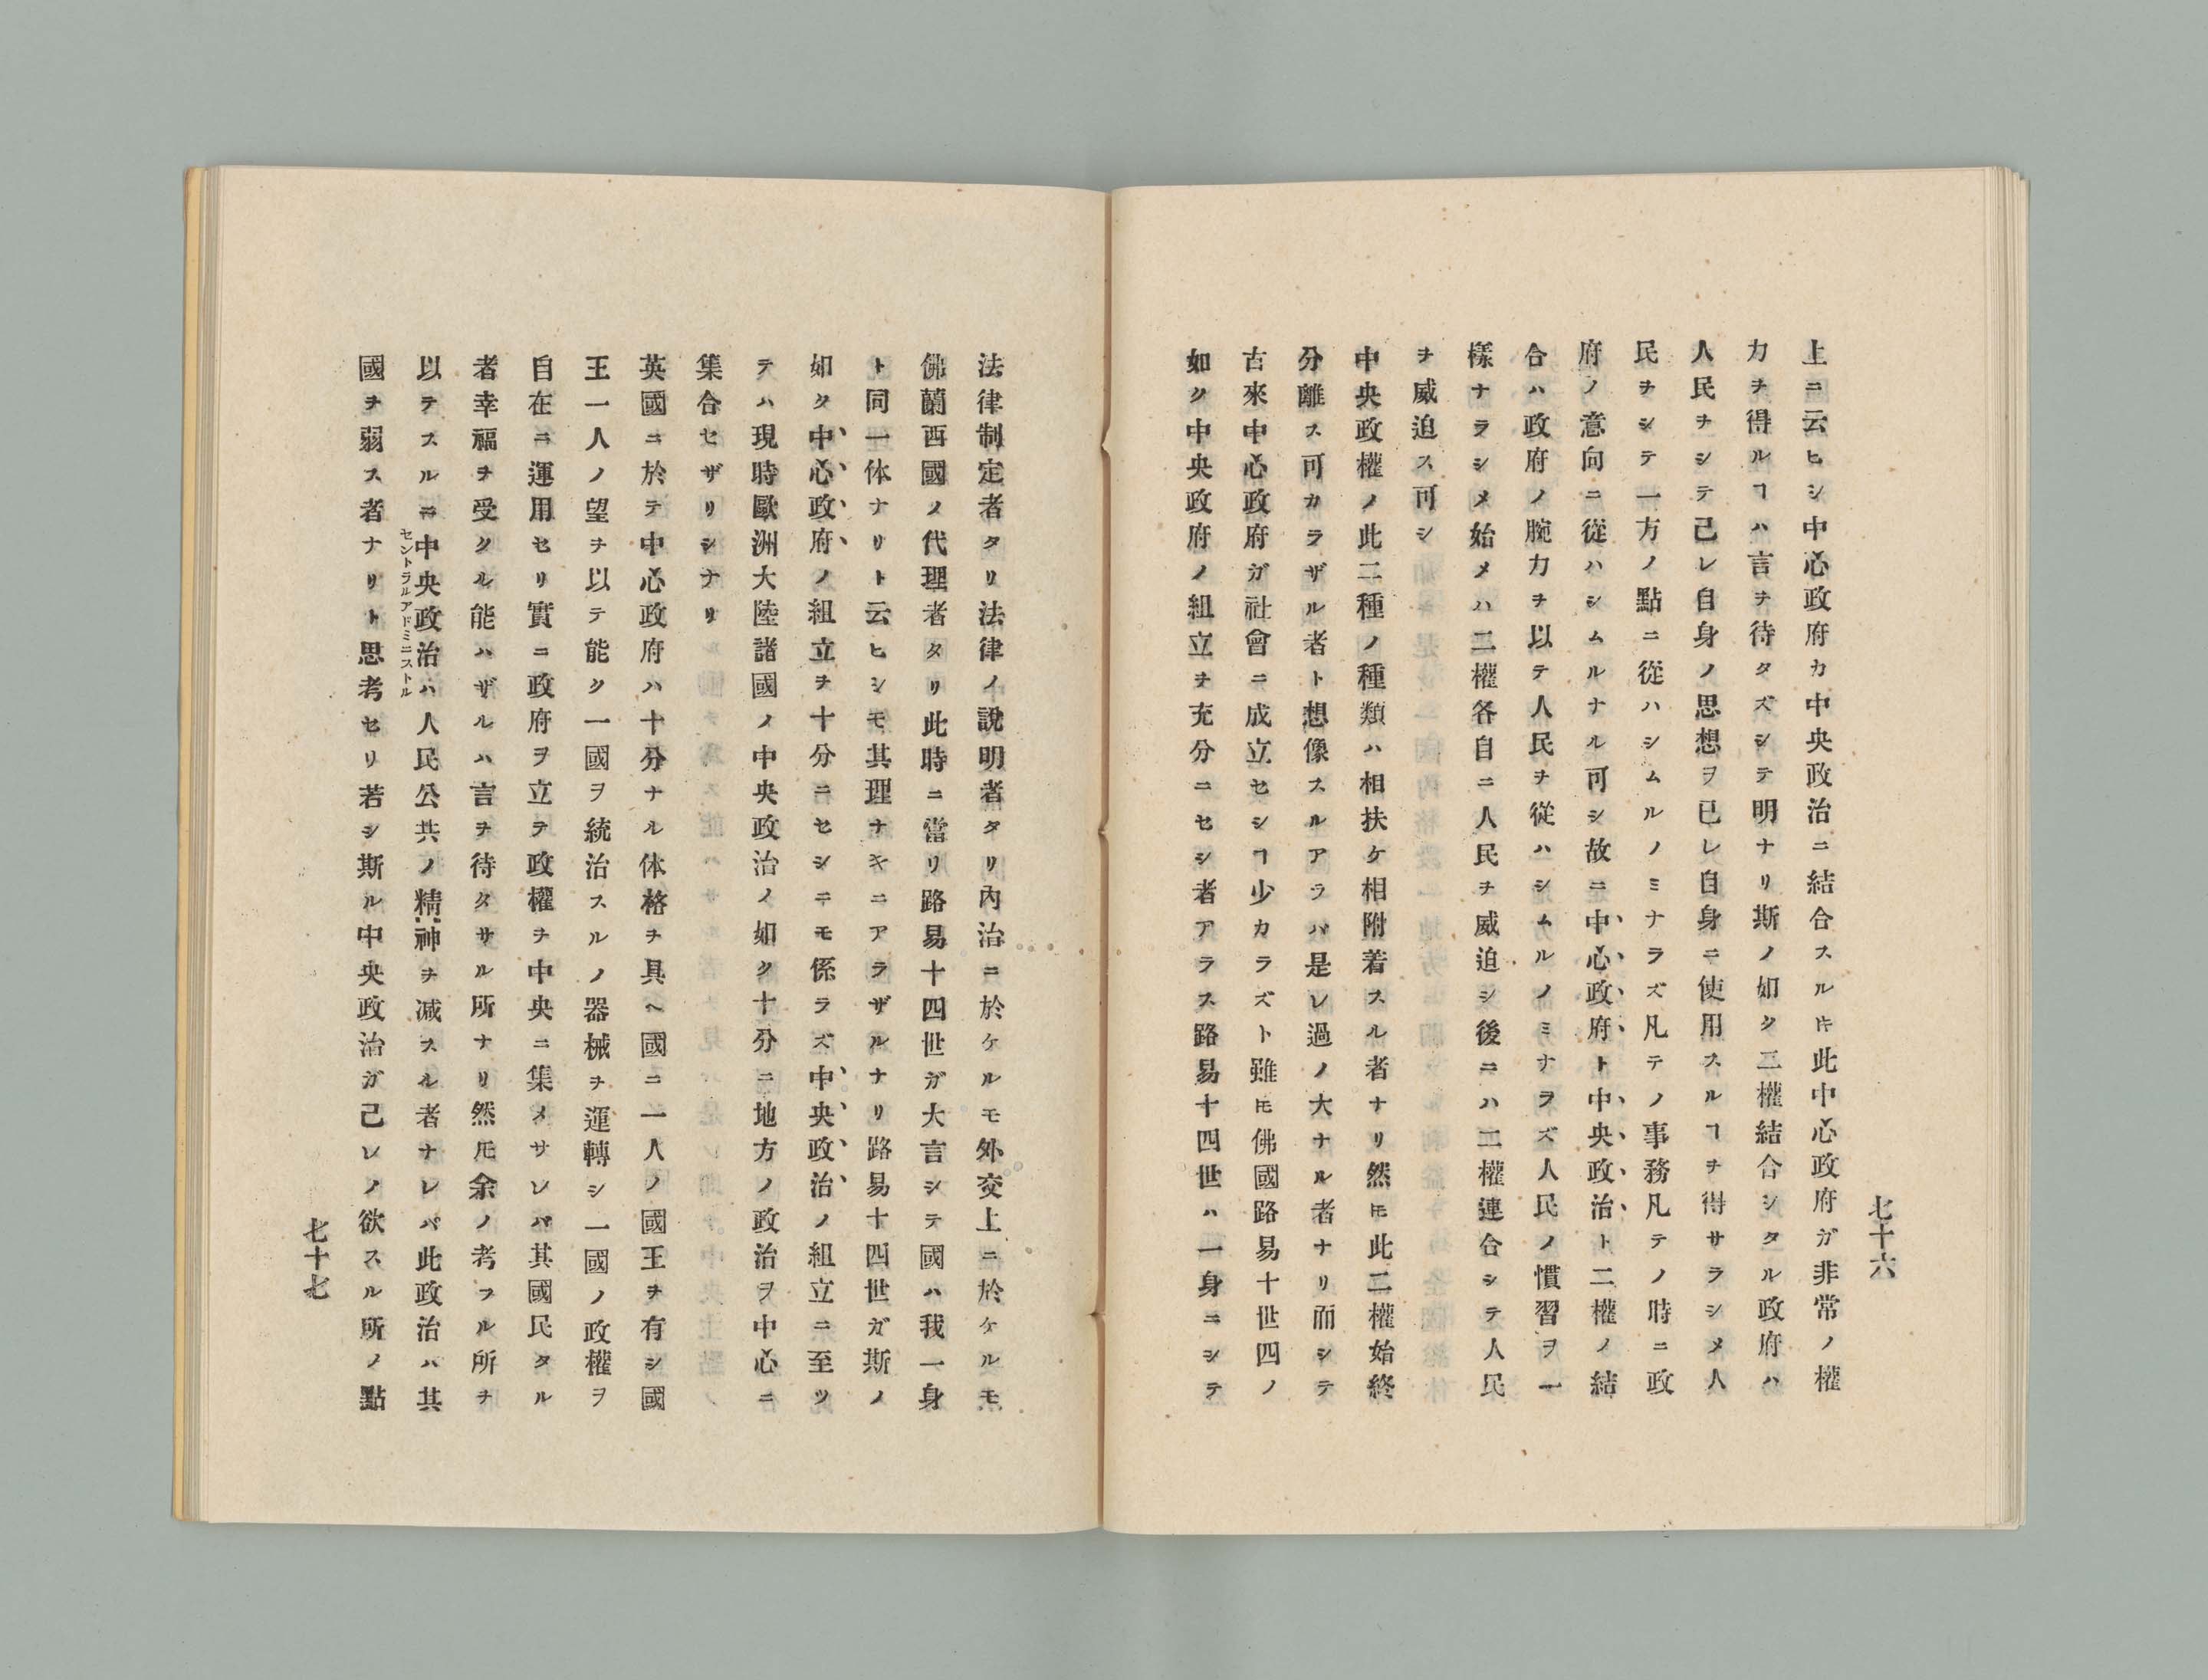 七十六
上ニ云ヒシ中心政府カ中央政治ニ結合スルヿ此中心政府ガ非常ノ權
力ヲ得ルヿハ言ヲ待タズシテ明ナリ斯ノ如ク二權結合シタル政府ハ
人民ヲシテ己レ自身ノ思想ヲ已レ自身ニ使用スルヿヲ得サラシメ人
民ヲシテ一方ノ點ニ從ハシムルノミナラズ凡テノ事務凡テノ時ニ政
府ノ意向ニ從ハシムルナル可シ故ニ中心政府ト中央政治ト二權ノ結
合ハ政府ノ腕力ヲ以テ人民ヲ從ハシムルノミナラズ人民ノ慣習ヲ一
樣ナラシメ始メハ二權各自ニ人民ヲ威迫シ後ニハ二權連合シテ人民
ヲ威迫ス可シ
中央政權ノ此二種ノ種類ハ相扶ケ相附着スル者ナリ然𪜈此二權始終
分離ス可カラザル者ト想像スルアラバ是レ過ノ大ナル者ナリ而シテ
古來中心政府ガ社會ニ成立セシヿ少カラズト雖𪜈佛國路易十世四ノ
如ク中央政府ノ組立ヲ充分ニセシ者アラス路易十四世ハ一身ニシテ
法律制定者タリ法律ノ說明者タリ內治ニ於ケルモ外交上ニ於ケルモ
佛蘭西國ノ代理者タリ此時ニ當リ路易十四世ガ大言シテ國ハ我一身
ト同一体ナリト云ヒシモ其理ナキニアラザルナリ路易十四世ガ斯ノ
如ク中心政府ノ組立ヲ十分ニセシニモ係ラズ中央政治ノ組立ニ至ツ
テハ現時歐洲大陸諸國ノ中央政治ノ如ク十分ニ地方ノ政治ヲ中心ニ
集合セザリシナリ
英國ニ於テ中心政府ハ十分ナル体格ヲ具ヘ國ニ一人ノ國王ヲ有シ國
王一人ノ望ヲ以テ能ク一國ヲ統治スルノ器械ヲ運轉シ一國ノ政權ヲ
自在ニ運用セリ實ニ政府ヲ立テ政權ヲ中央ニ集メサレバ其國民タル
者幸福ヲ受クル能ハザルハ言ヲ待タサル所ナリ然𪜈余ノ考フル所ヲ
以テスルニ中央政治ハ人民公共ノ精神ヲ减スル者ナレバ此政治ハ其
セントラルアドミニストル
國ヲ弱ス者ナリト思考セリ若シ斯ル中央政治ガ己レノ欲スル所ノ點
七十七